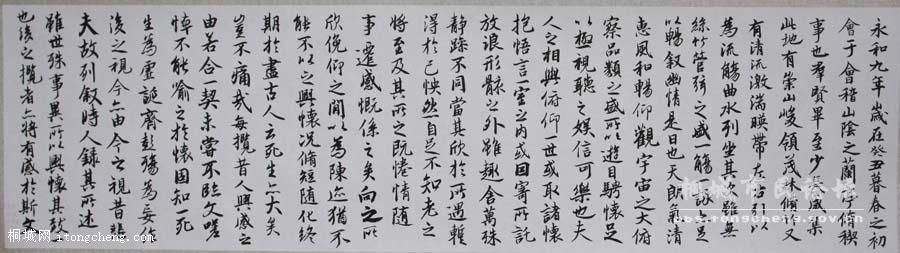 永和九年歲在癸丑暮春之初
會于會稽山陰之蘭亭脩稧
事也群賢畢至少長咸集
此地有崇山峻領茂林脩竹又
有清流激湍暎帶左右引以
為流觴曲水列坐其次雖無
絲竹管弦之盛一觴一詠亦足
以暢敘幽情是日也天朗氣清
惠風和暢仰觀宇宙之大俯
察品類之盛所以遊目騁懷足
以極視聽之娛信可樂也夫
人之相與俯仰一世或取諸懷
抱悟言一室之內或因寄所託
放浪形骸之外雖趣舍萬殊
靜躁不同當其欣於所遇暫
得於己怏然自足不知老之
將至及其所之既惓情隨
事遷感慨係之矣向之所
欣俛仰之間以為陳迹猶不
能不以之興懷況脩短隨化終
期於盡古人云死生亦大矣
豈不痛哉每攬昔人興感之
由若合一契未嘗不臨文嗟
悼不能喻之於懷固知一死
生為虛誕齊彭殤為妄作
後之視今亦由今之視昔悲
夫故列敘時人錄其所述
雖世殊事異所以興懷其致一
也後之攬者亦將有感於斯文
桐城网 itongcheng.com